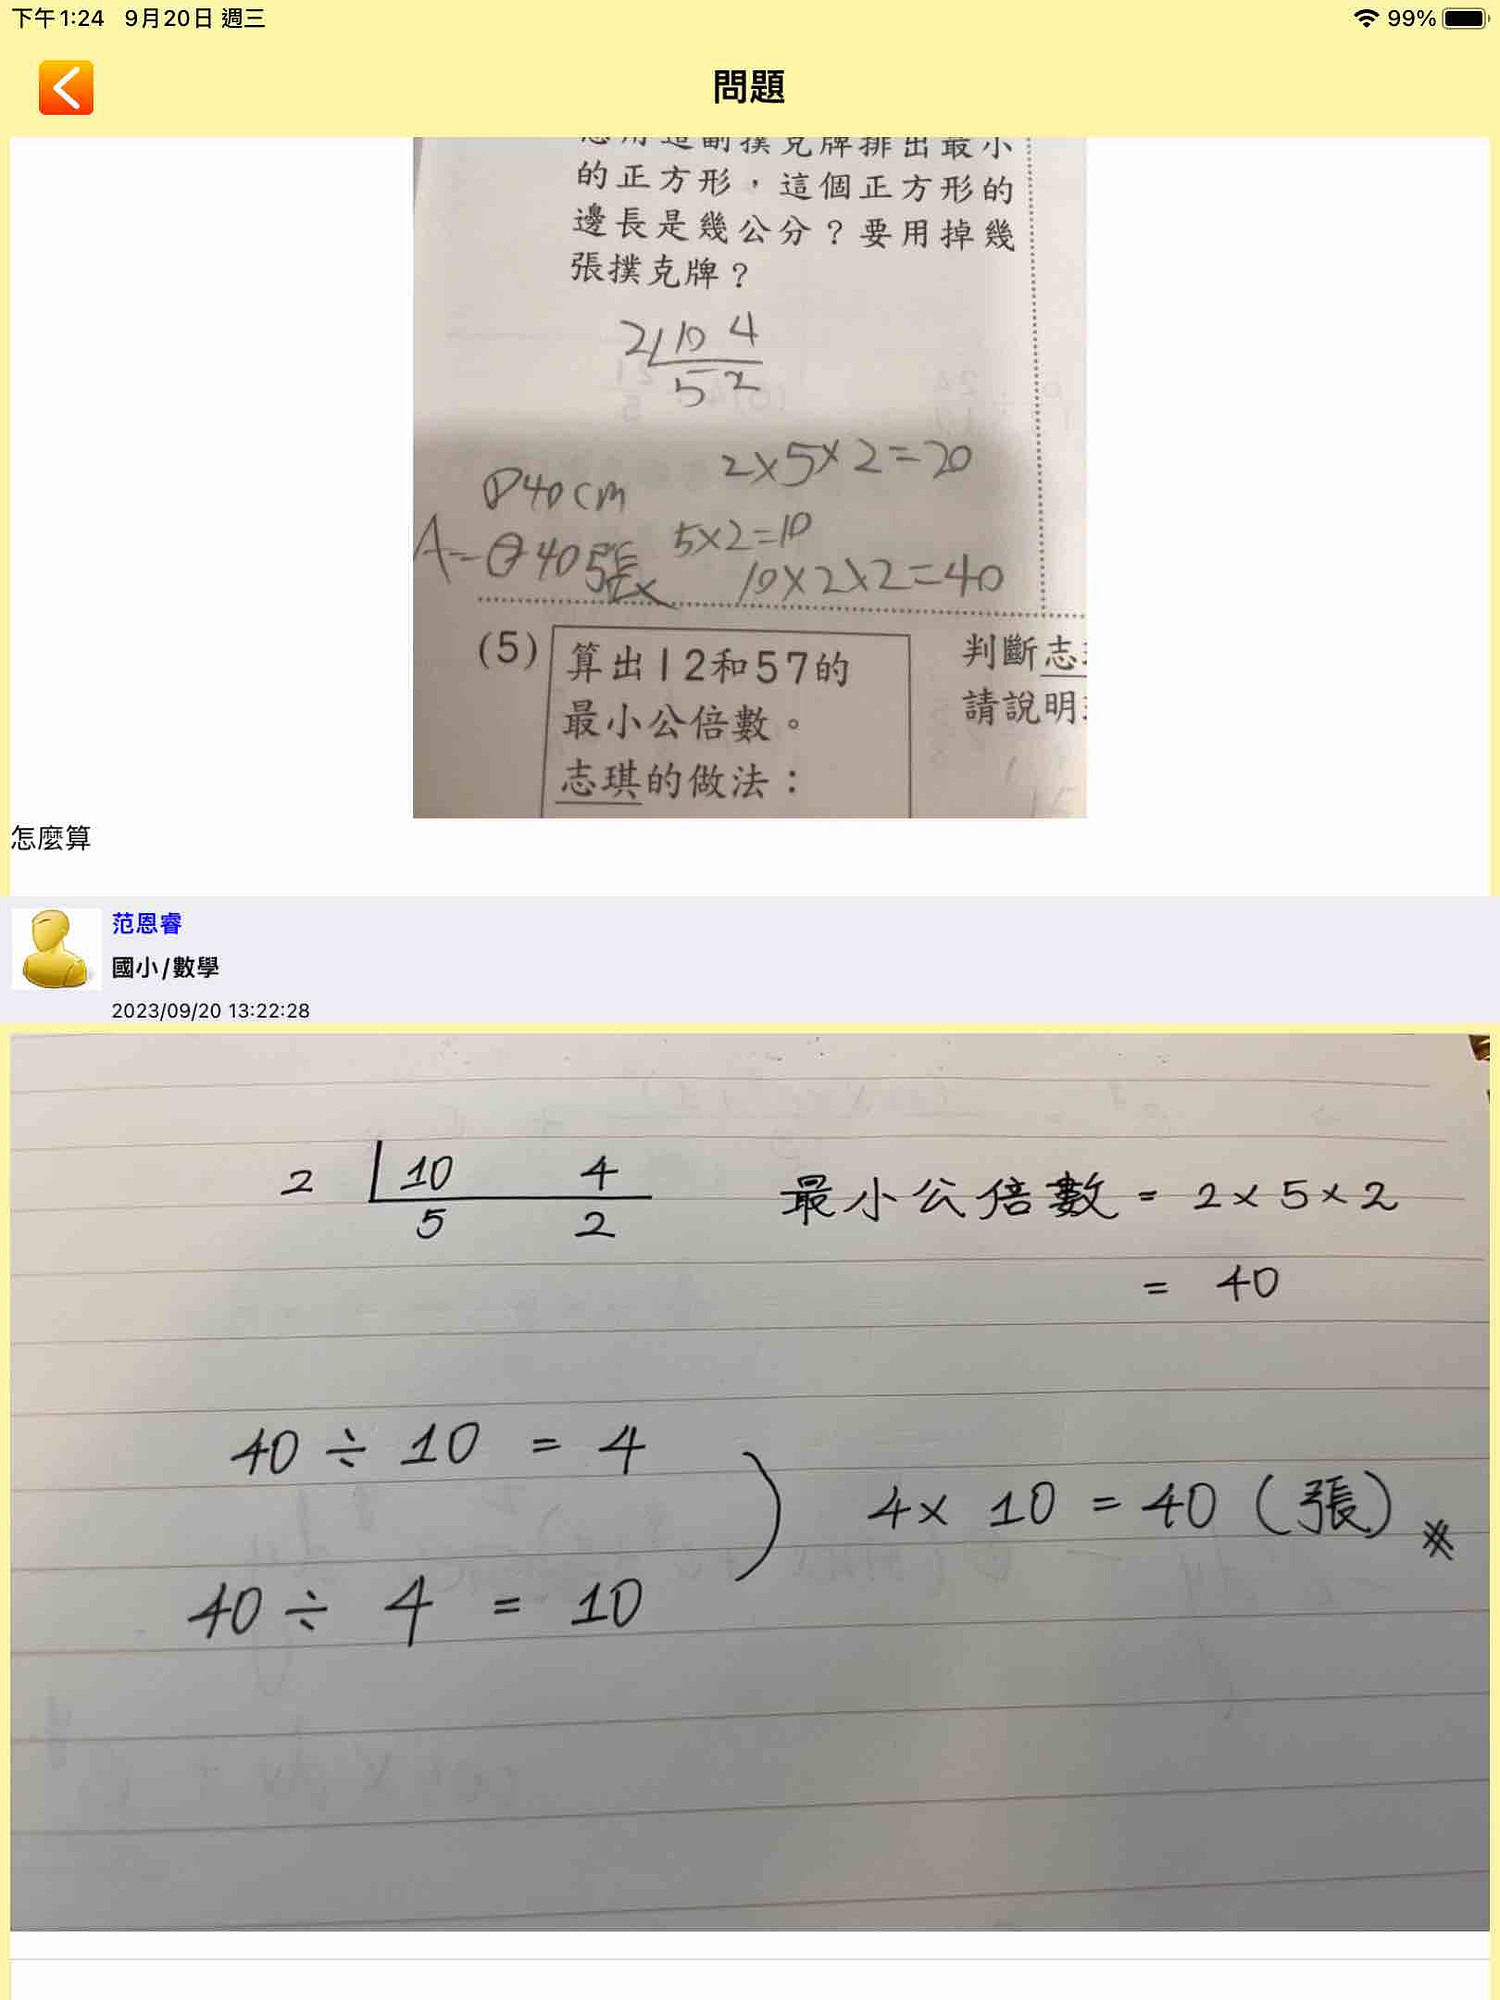 下午1:24 9月20日 週三
99%
問題
想用這副撲克牌排出最小
的正方形，這個正方形的
邊長是幾公分？要用掉幾
張撲克牌？
2 10 4
5 2
2×5×2=20
①40cm
5×2=10
A=②40張
10×2×2=40
(5)
算出12和57的
最小公倍數。
志琪的做法：
判斷志
請說明
怎麼算
范恩睿
國小/數學
2023/09/20 13:22:28
2 10 4
5 2
最小公倍數 = 2×5×2
= 40
40÷10 = 4
4×10 = 40（張）
40÷4 = 10